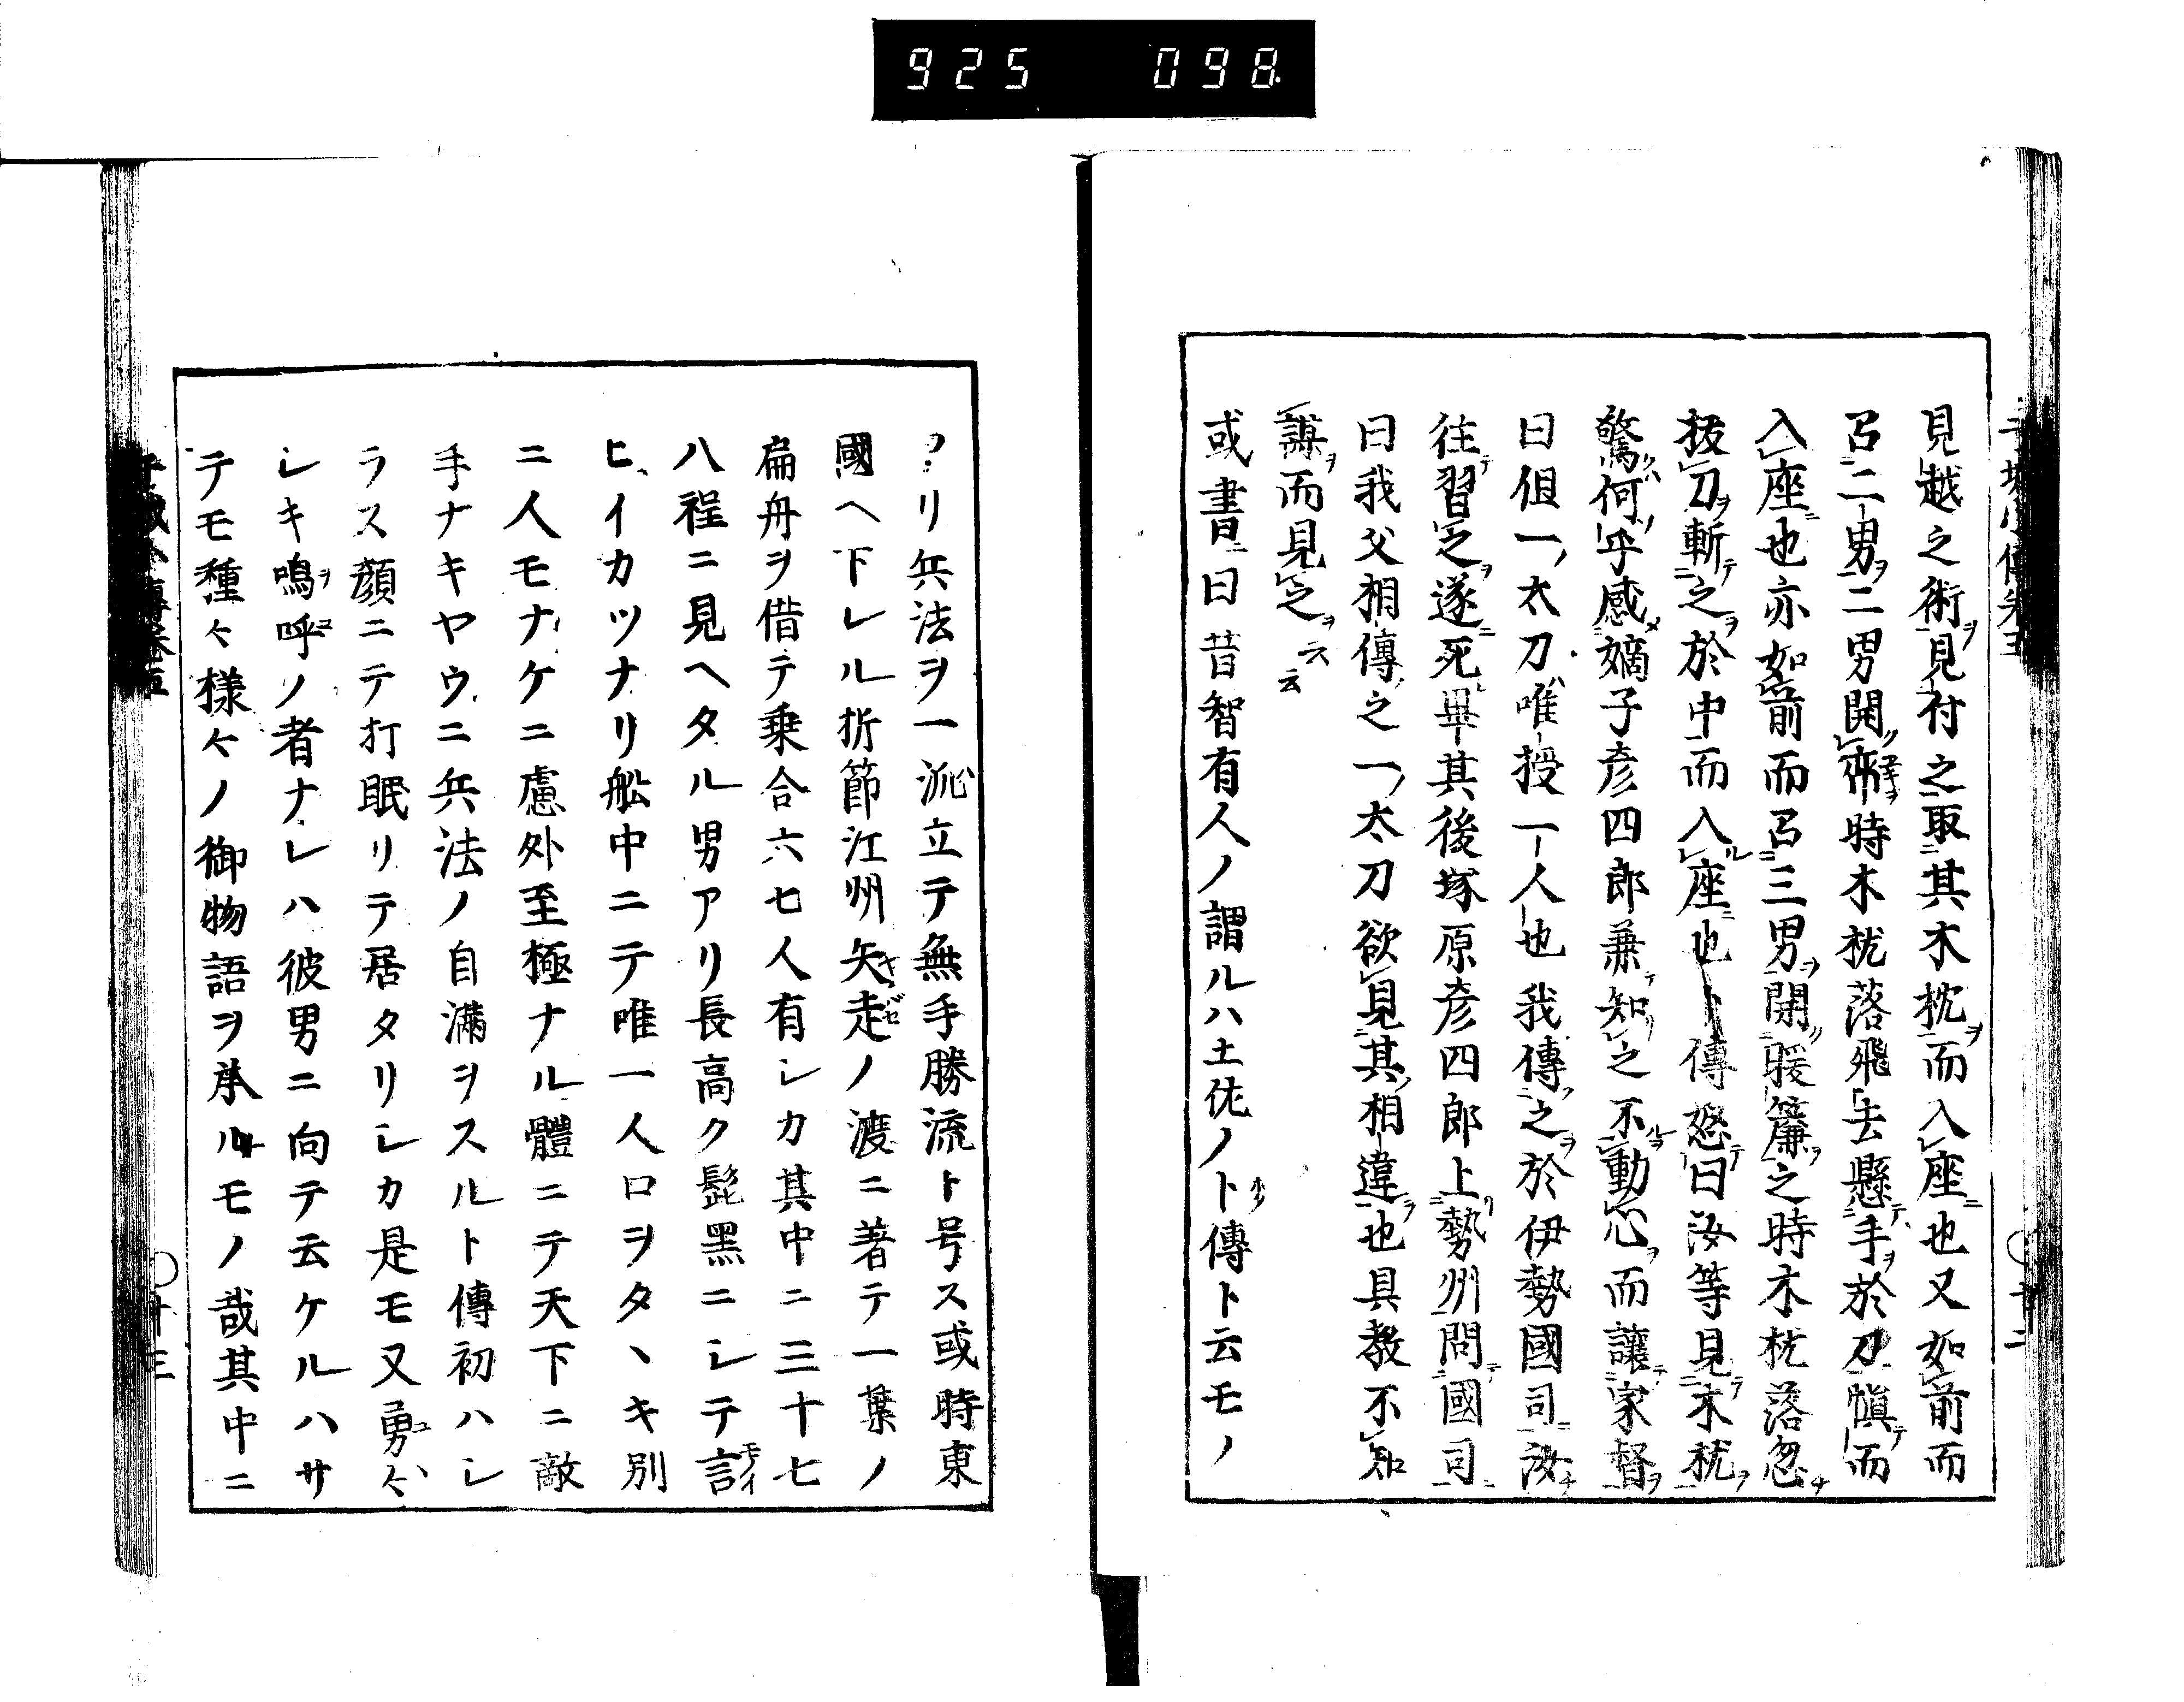 925 098
見越之術見付之取其木枕而入座也又如前而
召二男二男開帘時木枕落飛去懸手於刀愼而
入座也亦如前而召三男開暖簾之時木枕落忽
抜刀斬之於中而入座也卜傳怒曰汝等見木枕
驚何乎感嫡子彦四郎兼知之不動心而讓家督
曰但一太刀唯授一人也我傳之於伊勢國司汝
往習之遂死畢其後塚原彦四郎上勢州問國司
曰我父相傳之一太刀欲見其相違也具教不知
謀而見之云云
或書曰昔智有人ノ謂ルハ土佐ノ卜傳ト云モノ
アリ兵法ヲ一流立テ無手勝流ト号ス或時東
國ヘ下レル折節江州矢走ノ渡ニ著テ一葉ノ
扁舟ヲ借テ乗合六七人有シカ其中ニ三十七
八程ニ見ヘタル男アリ長高ク髭黑ニシテ言
ヒイカツナリ舩中ニテ唯一人口ヲタヽキ別
ニ人モナケニ慮外至極ナル體ニテ天下ニ敵
手ナキヤウニ兵法ノ自滿ヲスルト傳初ハシ
ラス顔ニテ打眠リテ居タリシカ是モ又勇々
シキ嗚呼ノ者ナレハ彼男ニ向テ云ケルハサ
テモ種々樣々ノ御物語ヲ承ルモノ哉其中ニ